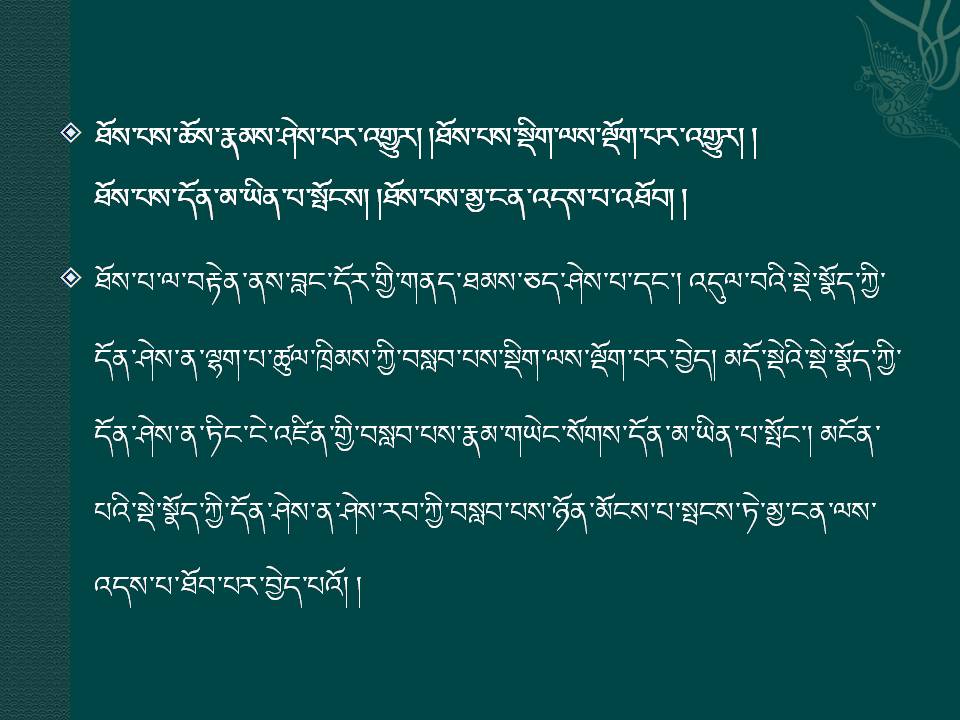 ཐོས་པས་ཆོས་རྣམས་ཤེས་པར་འགྱུར། །ཐོས་པས་སྡིག་ལས་ལྡོག་པར་འགྱུར། །
ཐོས་པས་དོན་མ་ཡིན་པ་སྤོངས། །ཐོས་པས་མྱ་ངན་འདས་པ་འཐོབ། །
ཐོས་པ་ལ་བརྟེན་ནས་བླང་དོར་གྱི་གནད་ཐམས་ཅད་ཤེས་པ་དང་། འདུལ་བའི་སྡེ་སྣོད་ཀྱི་
དོན་ཤེས་ན་ལྷག་པ་ཚུལ་ཁྲིམས་ཀྱི་བསླབ་པས་སྡིག་ལས་ལྡོག་པར་བྱེད། མདོ་སྡེའི་སྡེ་སྣོད་ཀྱི་
དོན་ཤེས་ན་ཏིང་ངེ་འཛིན་གྱི་བསླབ་པས་རྣམ་གཡེང་སོགས་དོན་མ་ཡིན་པ་སྤོང་། མངོན་
པའི་སྡེ་སྣོད་ཀྱི་དོན་ཤེས་ན་ཤེས་རབ་ཀྱི་བསླབ་པས་ཉོན་མོངས་པ་སྤངས་ཏེ་མྱ་ངན་ལས་
འདས་པ་ཐོབ་པར་བྱེད་པའོ། །